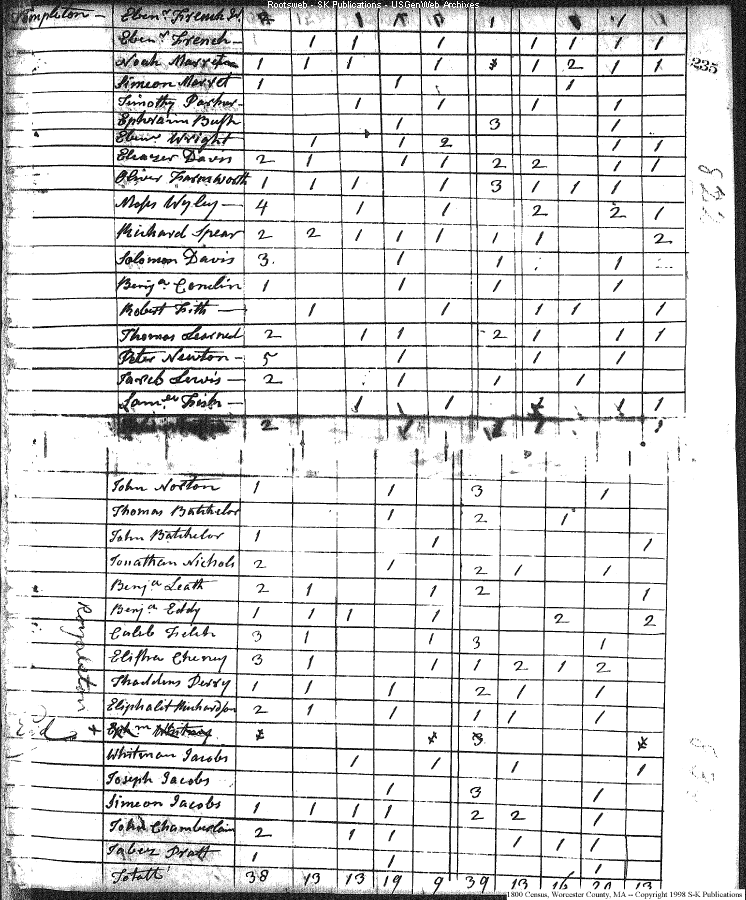 Rootsweb - SK Publications - USGenWeb Archives
Templeton — Ebenr. French Jr.
Ebenr. French — 1 1 1 1 1 1 1
Noah Merret 1 1 1 1 * 1 2 1 1
235
Simeon Merret 1 1 1
Timothy Parker — 1 1 1 1
Ephraim Bush 1 3 1
Ebenr. Wright 1 1 2 1 1
Eleazer Davis 2 1 1 1 2 2 1 1
Oliver Farnsworth 1 1 1 1 3 1 1 1
Moses Wyley — 4 1 1 2 2 1
Richard Spear 2 2 1 1 1 1 1 2
Solomon Davis 3 1 1 1
Benja. 1 1 1 1
Robert — 1 1 1 1 1
Thomas Learned 2 1 1 2 1 1 1
Peter Newton — 5 1 1 1
Lewis — 2 1 1 1
Samel. Fisk — 1 1 1 1 1
2
John Norton 1 1 3 1
Thomas Batchelor 1 2 1
John Batchelor 1 1 1
Jonathan Nichols 2 1 2 1 1
Benja. Leath 2 1 1 2 1
Benja. Eddy 1 1 1 1 2 2
Royalston
Caleb 3 1 1 3 1
Elisha Cheney 3 1 1 1 2 1 2
Thaddeus Perry 1 1 1 2 1 1
Eliphalit Richardson 2 1 1 1 1 1
+ Ephm. Whitney * * 3 *
Whitman Jacobs 1 1 1 1
Joseph Jacobs 1 3 1
Simeon Jacobs 1 1 1 1 2 2 1
John Chamberlain 2 1 1 1 1 1
Jabez Pratt 1 1 1
Totall 38 13 13 19 9 39 13 16 20 13
1800 Census, Worcester County, MA -- Copyright 1998 S-K Publications